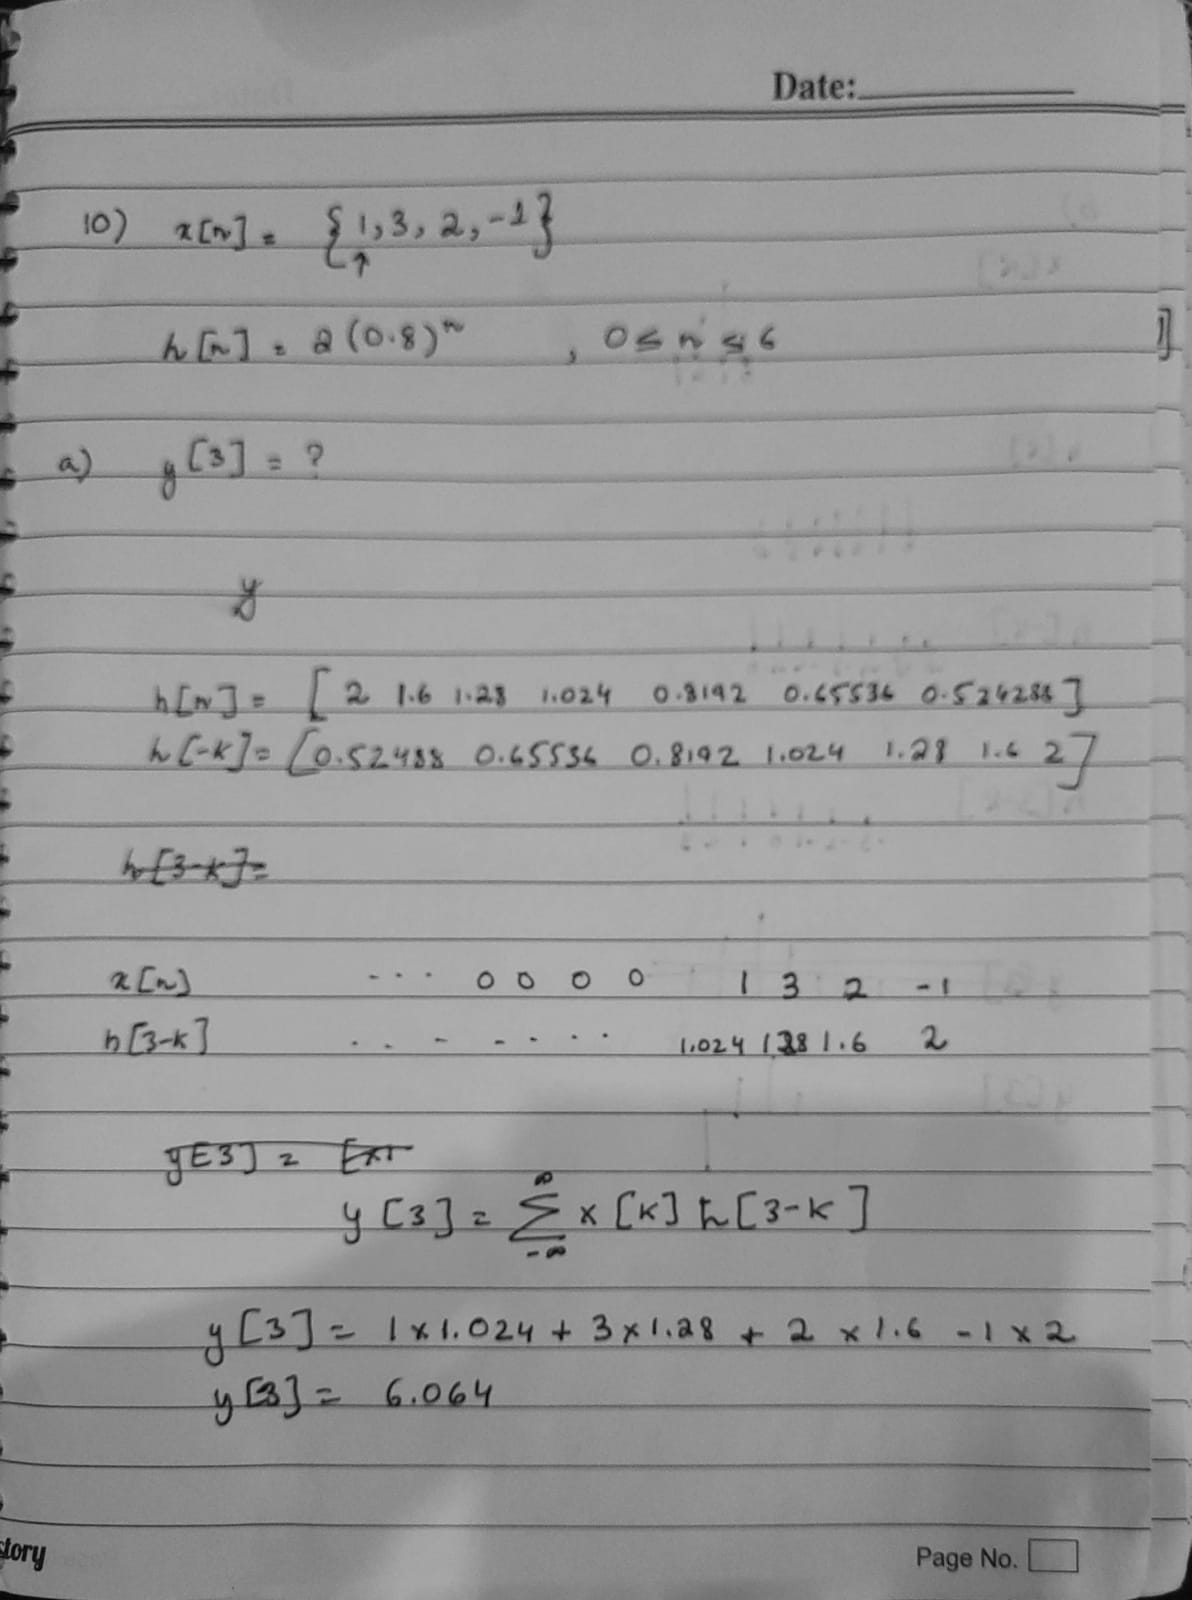 Date:
10) x[n] = {1, 3, 2, -1}
↑
h[n] = 2(0.8)ⁿ , 0 ≤ n ≤ 6
a) y[3] = ?
y
h[n] = [2 1.6 1.28 1.024 0.8192 0.65536 0.524288]
h[-k] = [0.52488 0.65536 0.8192 1.024 1.28 1.6 2]
h[3-k] =
x[n] ... 0 0 0 0 1 3 2 -1
h[3-k] ....... 1.024 1.28 1.6 2
y[3] =
y[3] = ∞Σ-∞ x[k] h[3-k]
y[3] = 1 x 1.024 + 3 x 1.28 + 2 x 1.6 - 1 x 2
y[3] = 6.064
story
Page No.